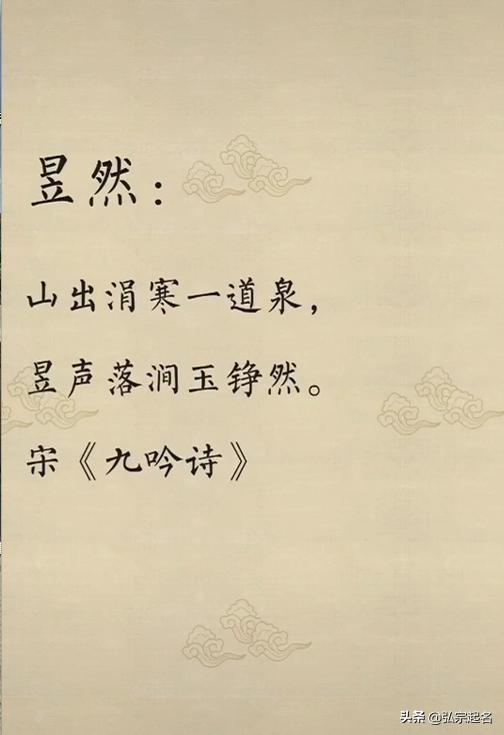 昱然：
山出涓寒一道泉，
昱声落涧玉铮然。
宋《九吟诗》
头条 @弘宗起名